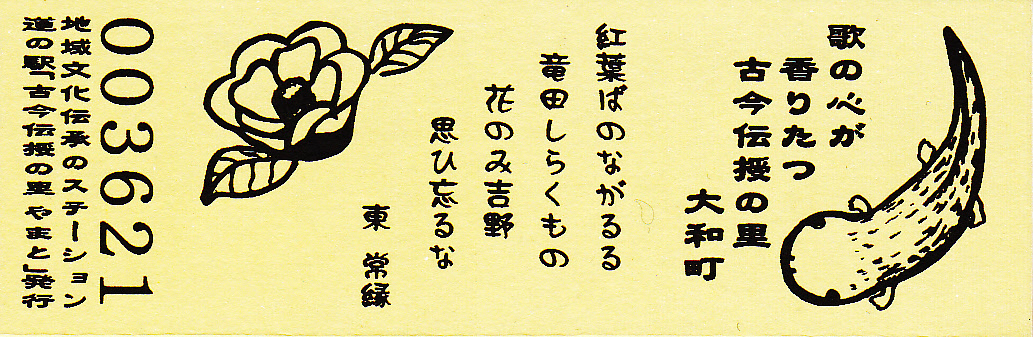 歌の心が
香りたつ
古今伝授の里
大和町
紅葉ばのながるる
竜田しらくもの
花のみ吉野
思ひ忘るな
東 常縁
003621
地域文化伝承のステーション
道の駅「古今伝授の里 やまと」発行